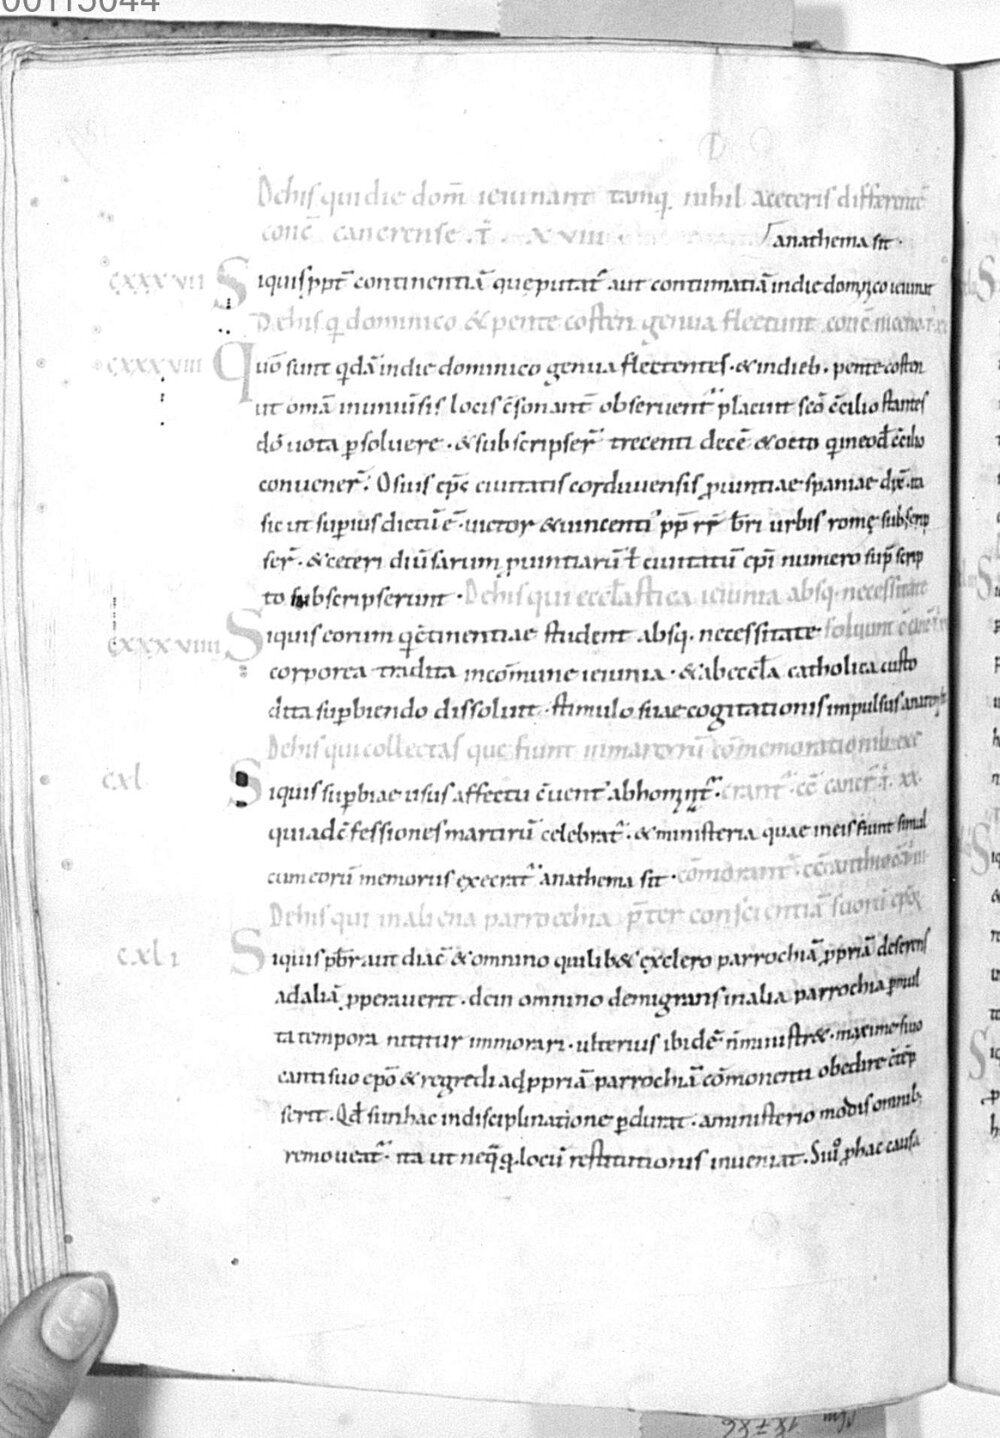 00115044
De his qui die dom̄ ieiunant tamq̄ nihil a ceteris differente
conc̄ cancrense . t̄ . xviii
anathema sit ·
cxxxvii Siquis ppt̄ continentiā quę putat᷑ aut contumatiā in die dominico ieiunat
De his q̄ dominico & pentecosten genua flectunt conc̄ niceno . t̄ . xx
cxxxviii Quō sunt q̄dā in die dominico genua flectentes · & in dieb · pentecosten
ut omā in uniūsis locis c̄sonant̄ obseruent᷑ placuit scō c̄cilio stantes
dō uota p̱soluere · & subscripser̄ trecenti decē & octo q̄ in eod̄ c̄cilio
conuener̄ . Osius ep̄c ciuitatis corduuensis ꝓuintiae spaniae dix̄ . ita
sic ut sup̱ius dictū ē · uictor & uincentiꝰ pp̄ rr̄ b̄ri urbis romę subscrip
ser̄ · & ceteri diūsarum ꝓuintiarū t̄ ciuitatū ep̄i numero sup̄scrip
to subscripserunt · De his qui eccłastica ieiunia absq · necessitate
cxxxviiii Siquis eorum q̄ c̄tinentiae student absq · necessitate soluunt
corporea tradita in com̄une ieiunia · & ab eccła catholica custo
dita sup̱biendo dissoluit · stimulo suae cogitationis impulsus anathema sit
De his qui collectas que fiunt in martyrū com̄emorationib exe
cxl Siquis sup̱biae usus affectu c̄uent᷑ abhominat᷑ · crant᷑ · cc̄ cancr̄ . t̄ . xx ·
qui ad c̄fessiones martirū celebrat᷑ · & ministeria quae in eis fiunt simul
cum eorū memoriis execrat᷑ anathema sit · com̄orant᷑ · cc̄ anthioc̄ iii
De his qui in aliena parrocchia p̄ter conscientiā suorū ep̄oꝝ
cxli Siquis pb̄r aut diac̄ & omnino quilib& ex clero parrochiā ꝓpriā deserens
ad aliā ꝓperauerit · dein omnino demigrans in alia parrochia p̱ mul
ta tempora nititur immorari · ulterius ibidē n̄ ministr& · maxime si uo
canti suo ep̄o & regredi ad ꝓpriā parrochiā com̄onenti obedire c̄tēp
serit . Qd̄ si in hac indisciplinatione p̱durat · a ministerio modis omnib;
remoueat᷑ · ita ut neq̄q · locū restitutionis inueniat . Si uº ꝓ hac causa